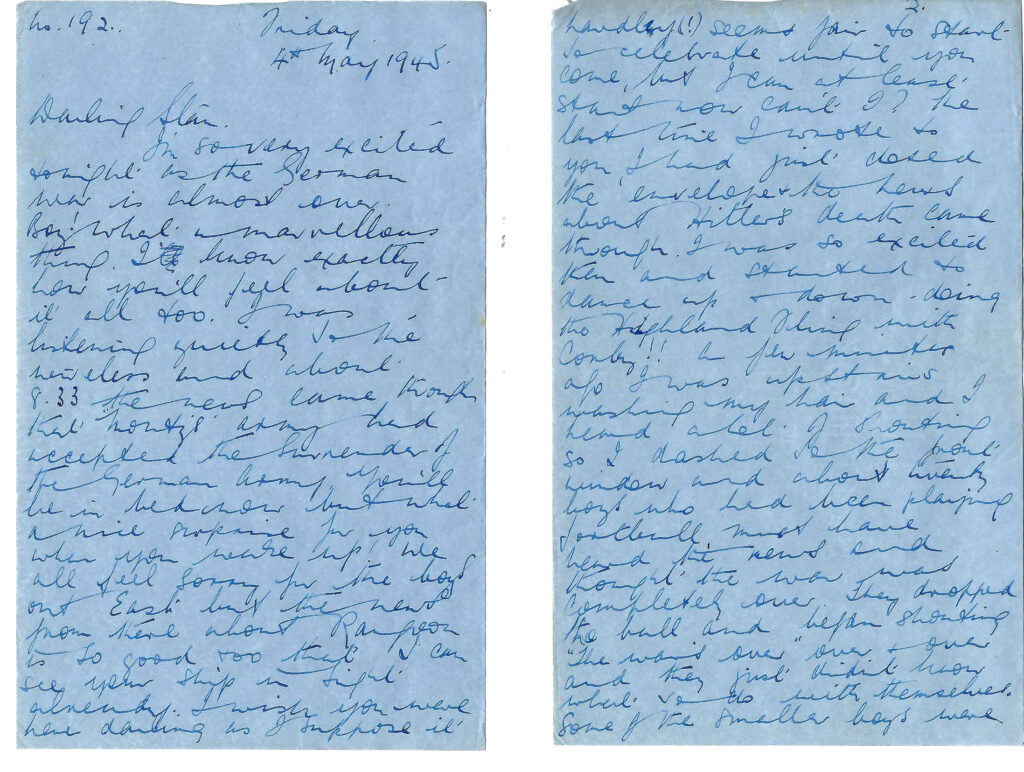 no. 192..
Friday
4th May 1945.
Darling Stan.
I'm so very excited
tonight as the German
war is almost over.
Boy! what a marvellous
thing. I know exactly
how you'll feel about
it all too. I was
listening quietly to the
wireless and about
8.33 the news came through
that "Monty's" army had
accepted the surrender of
the German army. You'll
be in bed now but what
a nice surprise for you
when you wake up! We
all feel sorry for the boys
out East but the news
from there about Rangoon
is so good too that I can
see your ship in sight
already. I wish you were
here darling as I suppose it
2.
hardly(!) seems fair to start
to celebrate until you
come, but I can at least
start now can't I? The
last time I wrote to
you, I had just closed
the envelope & the news
about Hitler's death came
through. I was so excited
then and started to
dance up & down - doing
the Highland Fling with
Corby!! A few minutes
ago I was upstairs
washing my hair and I
heard a lot of shouting
so I dashed to the front
window and about twenty
boys who had been playing
football must have
heard the news and
thought the war was
completely over. They dropped
the ball and began shouting
"The war's over" over & over
and they just didn't know
what to do with themselves.
Some of the smaller boys were